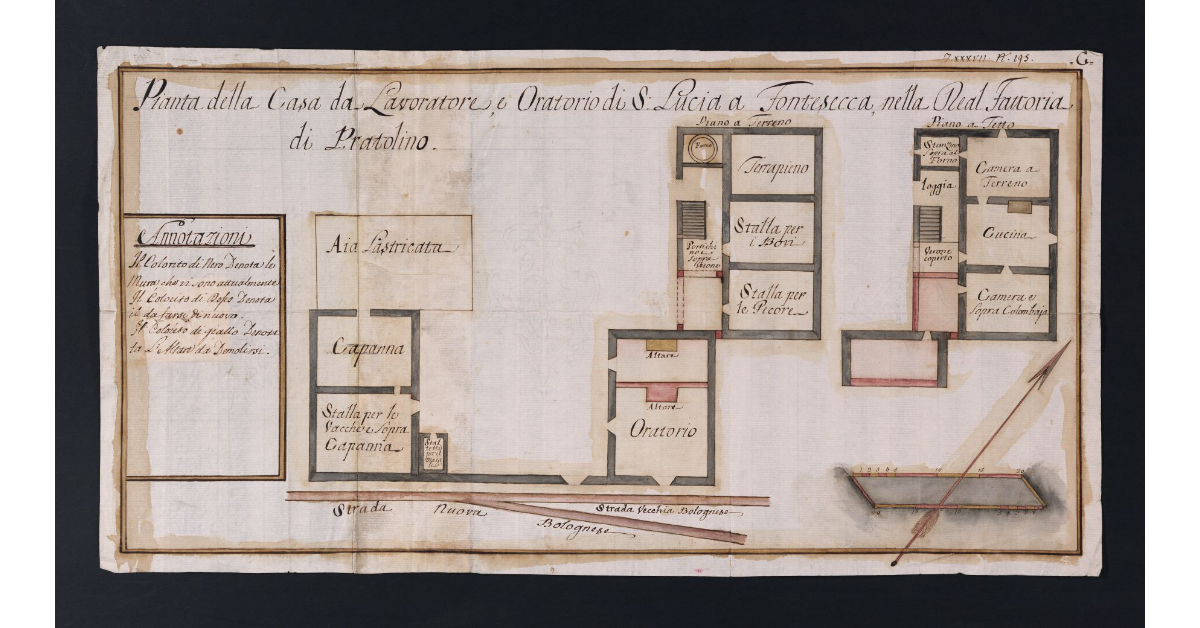 N.º 195.
G
Pianta della Casa da Lavoratore, e Oratorio di S. Lucia a Fontesecca, nella Real Fattoria
di Pratolino.
Annotazioni
Il Colorito di Nero Denota le
Mura che vi sono attualmente
Il Colorito di Rosso Denota
il da farsi di nuovo.
Il Colorito di giallo Denota
L'Altare da Demolirsi.
Aia Lastricata
Capanna
Stalla per le
Vacche e sopra
Capanna
Piano a Terreno
Forno
Terrapieno
Stalla per
i Bovi
sopra
Verone
Stalla per
le Pecore
Altare
Altare
Oratorio
Piano a Tetto
Stanzino
sopra al
Forno
Camera a
Terreno
Loggia
Cucina
Verone
coperto
Camera e
sopra Colombaja
Strada Nuova
Bolognese
Strada Vecchia Bolognese